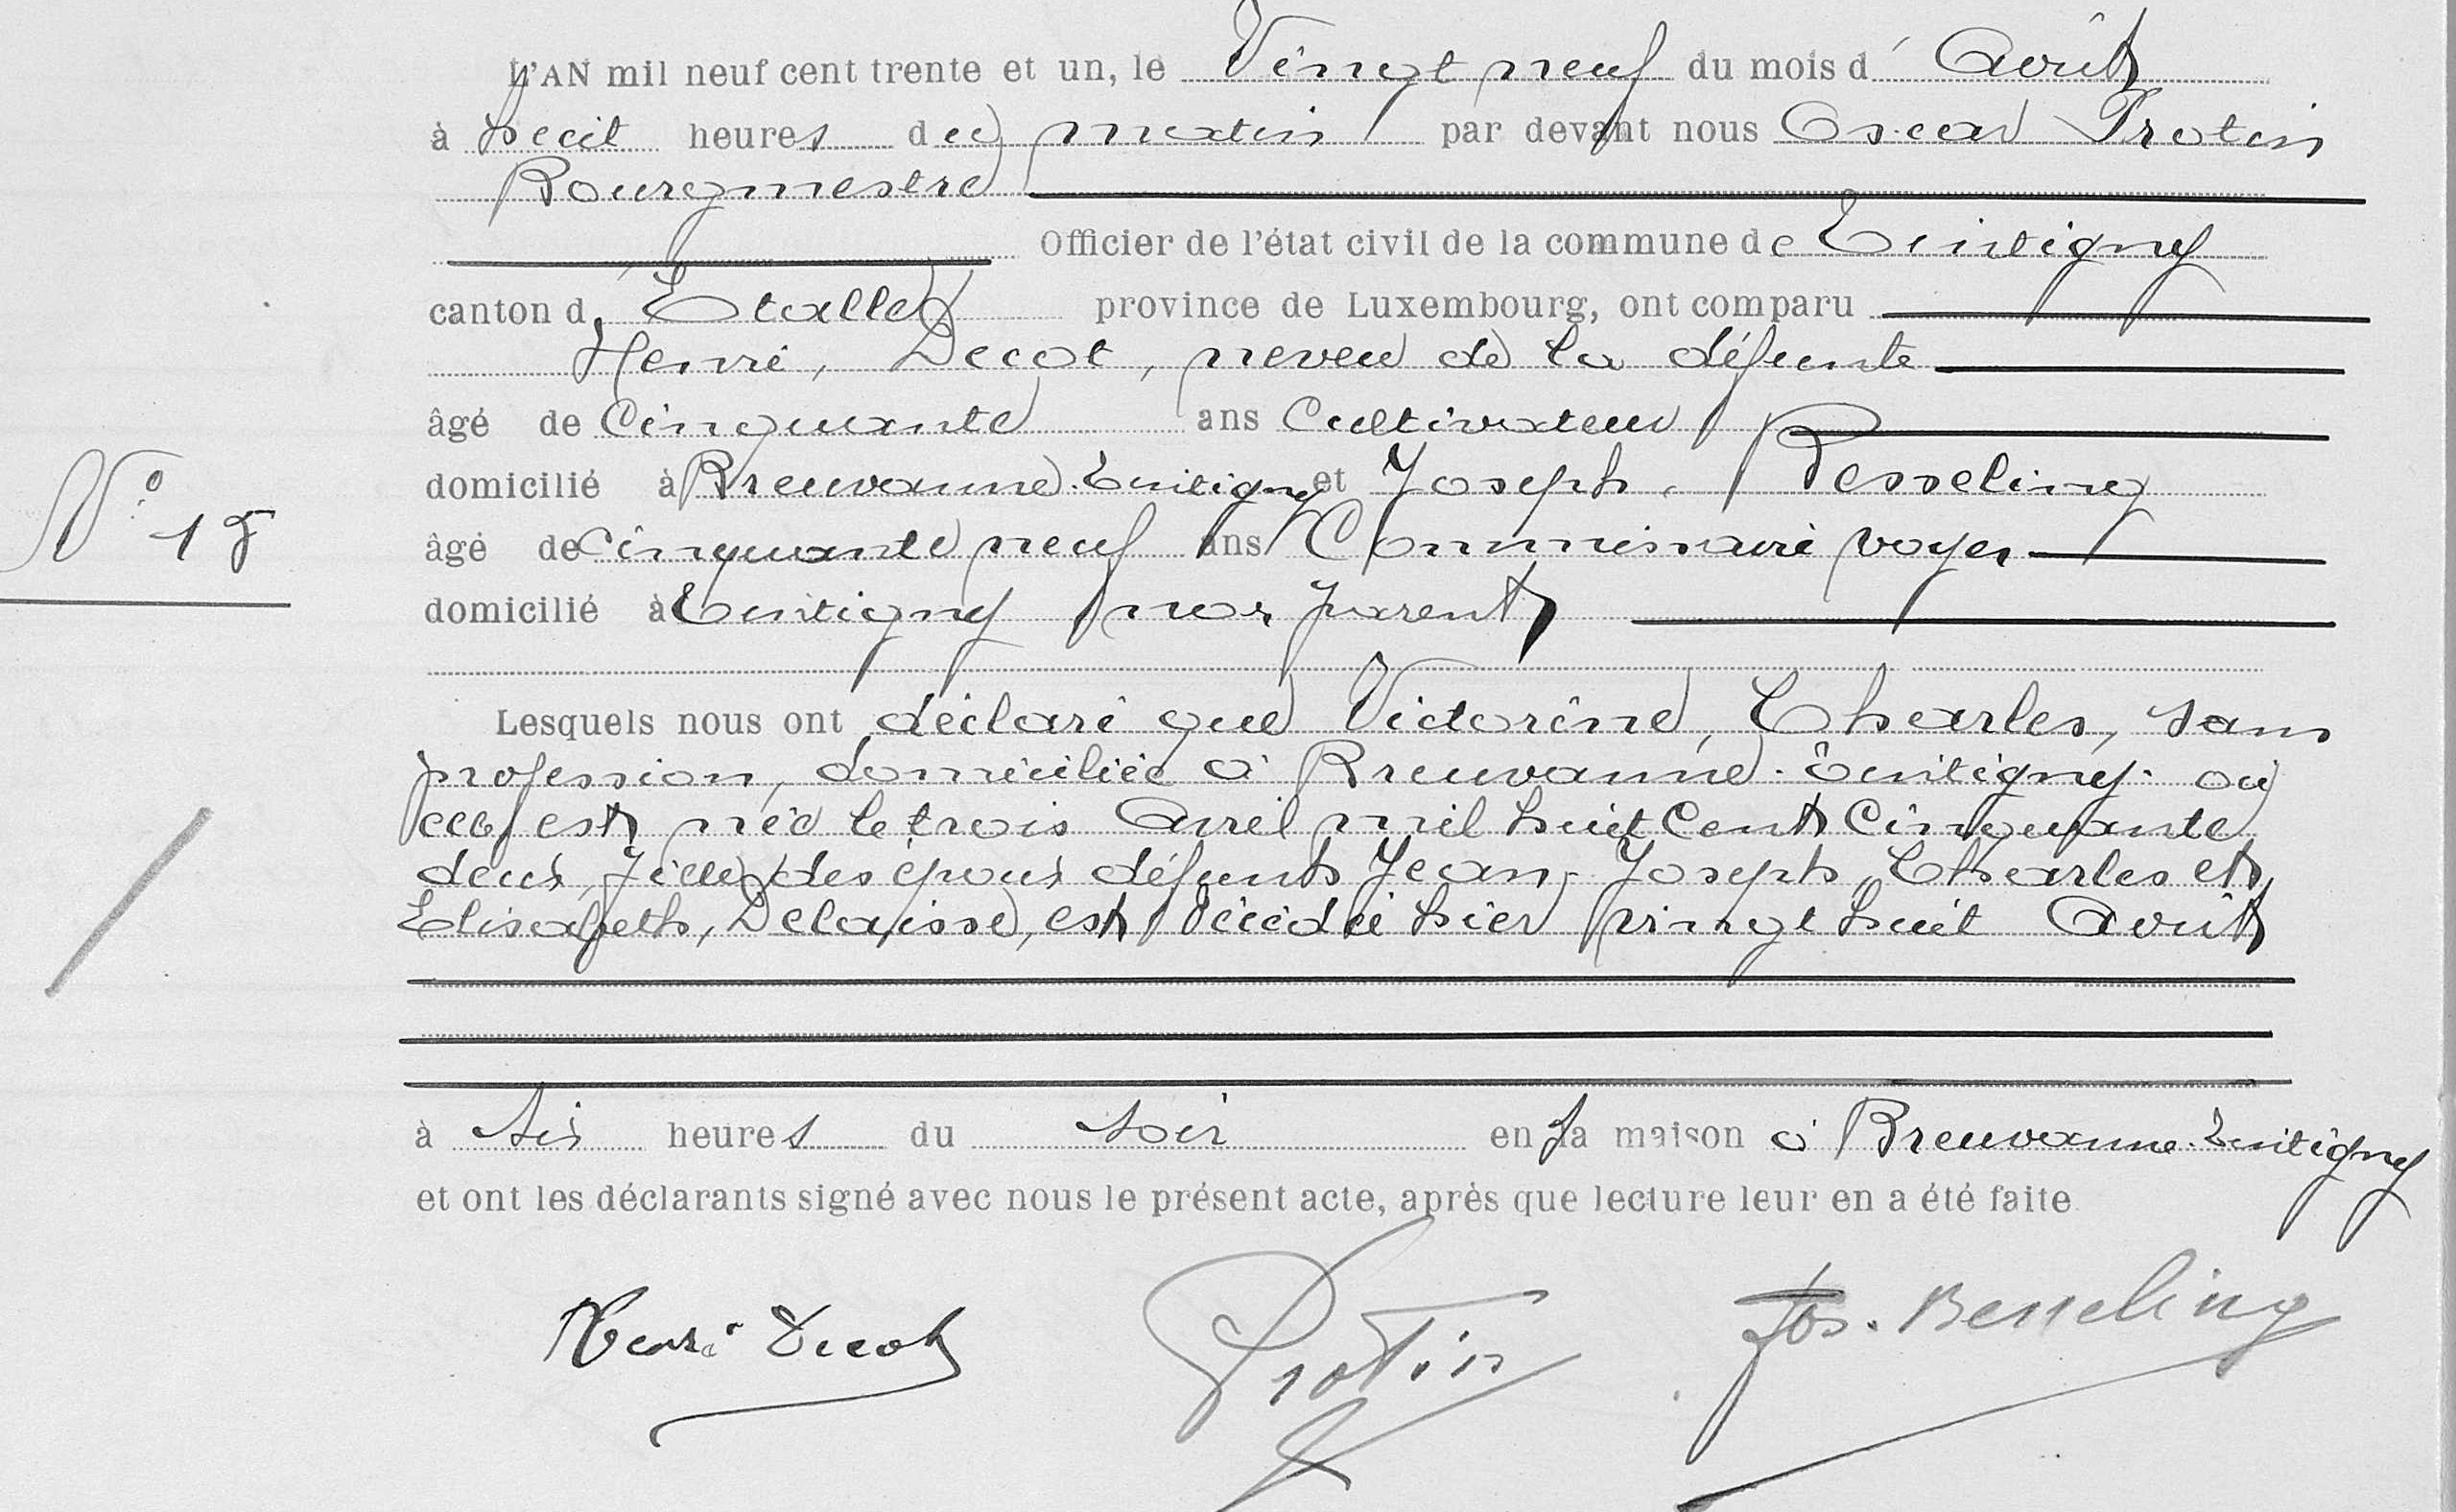 L'AN mil neuf cent trente et un, le Vingt neuf du mois d' Août
à huit heures du matin par devant nous Oscar Protin
Bourgmestre
Officier de l'état civil de la commune de Tintigny
canton d' Etalle province de Luxembourg, ont comparu
Henri, Decot, neveu de la défunte
âgé de Cinquante ans Cultivateur
domicilié à Breuvanne-Tintigny et Joseph, Besseling
âgé de Cinquante neuf ans Commissaire voyer
N° 18
domicilié à Tintigny non parent
Lesquels nous ont déclaré que Victorine, Charles, sans
profession, domiciliée à Breuvanne-Tintigny où
elle est née le trois Avril mil huit Cent Cinquante
deux, fille des époux défunts Jean-Joseph, Charles et
Elisabeth, Delaisse, est décédée hier vingt huit Août
à six heures du soir en sa maison à Breuvanne-Tintigny
et ont les déclarants signé avec nous le présent acte, après que lecture leur en a été faite
Henri Decot Protin Jos. Besseling